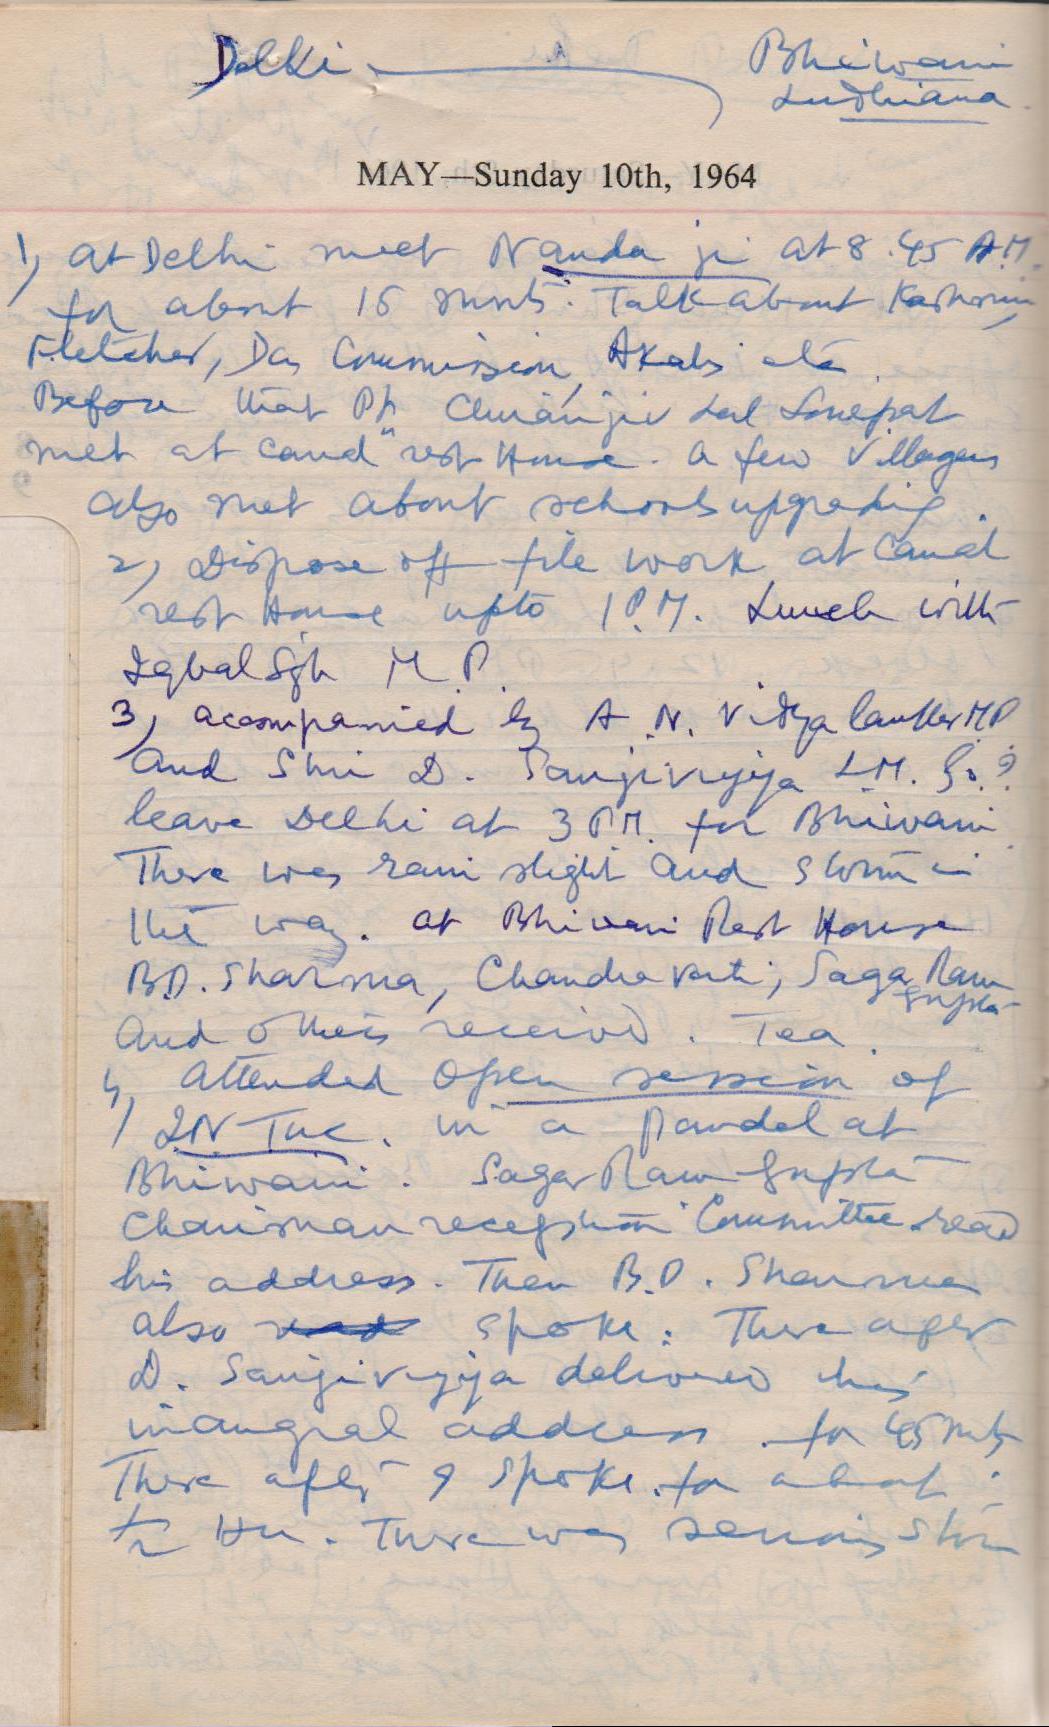 Delhi Bhiwani
Ludhiana
MAY—Sunday 10th, 1964
1) at Delhi meet Nanda ji at 8.45 A.M.
for about 15 mnts. Talk about Kashmir,
Fletcher, Das Commission, Akalis etc.
Before that Pt. Chiranjiv Lal Sonepat
met at canal rest House. a few Villagers
also met about schools upgrading.
2) Dispose off file work at Canal
rest House upto 1 P.M. Lunch with
Iqbal Sgh M.P.
3) accompanied by A.N. Vidyalankar M.P.
and Shri D. Sanjivayya L.M. G.
leave Delhi at 3 P.M. for Bhiwani
There was rain slight and storm in
the way. at Bhiwani Rest House
B.D. Sharma, Chandravati, Sagar Ram
Gupta
and others received. Tea.
4) attended open session of
I.N.TUC. in a pandal at
Bhiwani. Sagar Ram Gupta
Chairman reception Committee read
his address. Then B.D. Sharma
also spoke. There after
D. Sanjivayya delivered his
inaugral address for 45 mnts
There after I spoke for about
½ Hr. There was serious storm